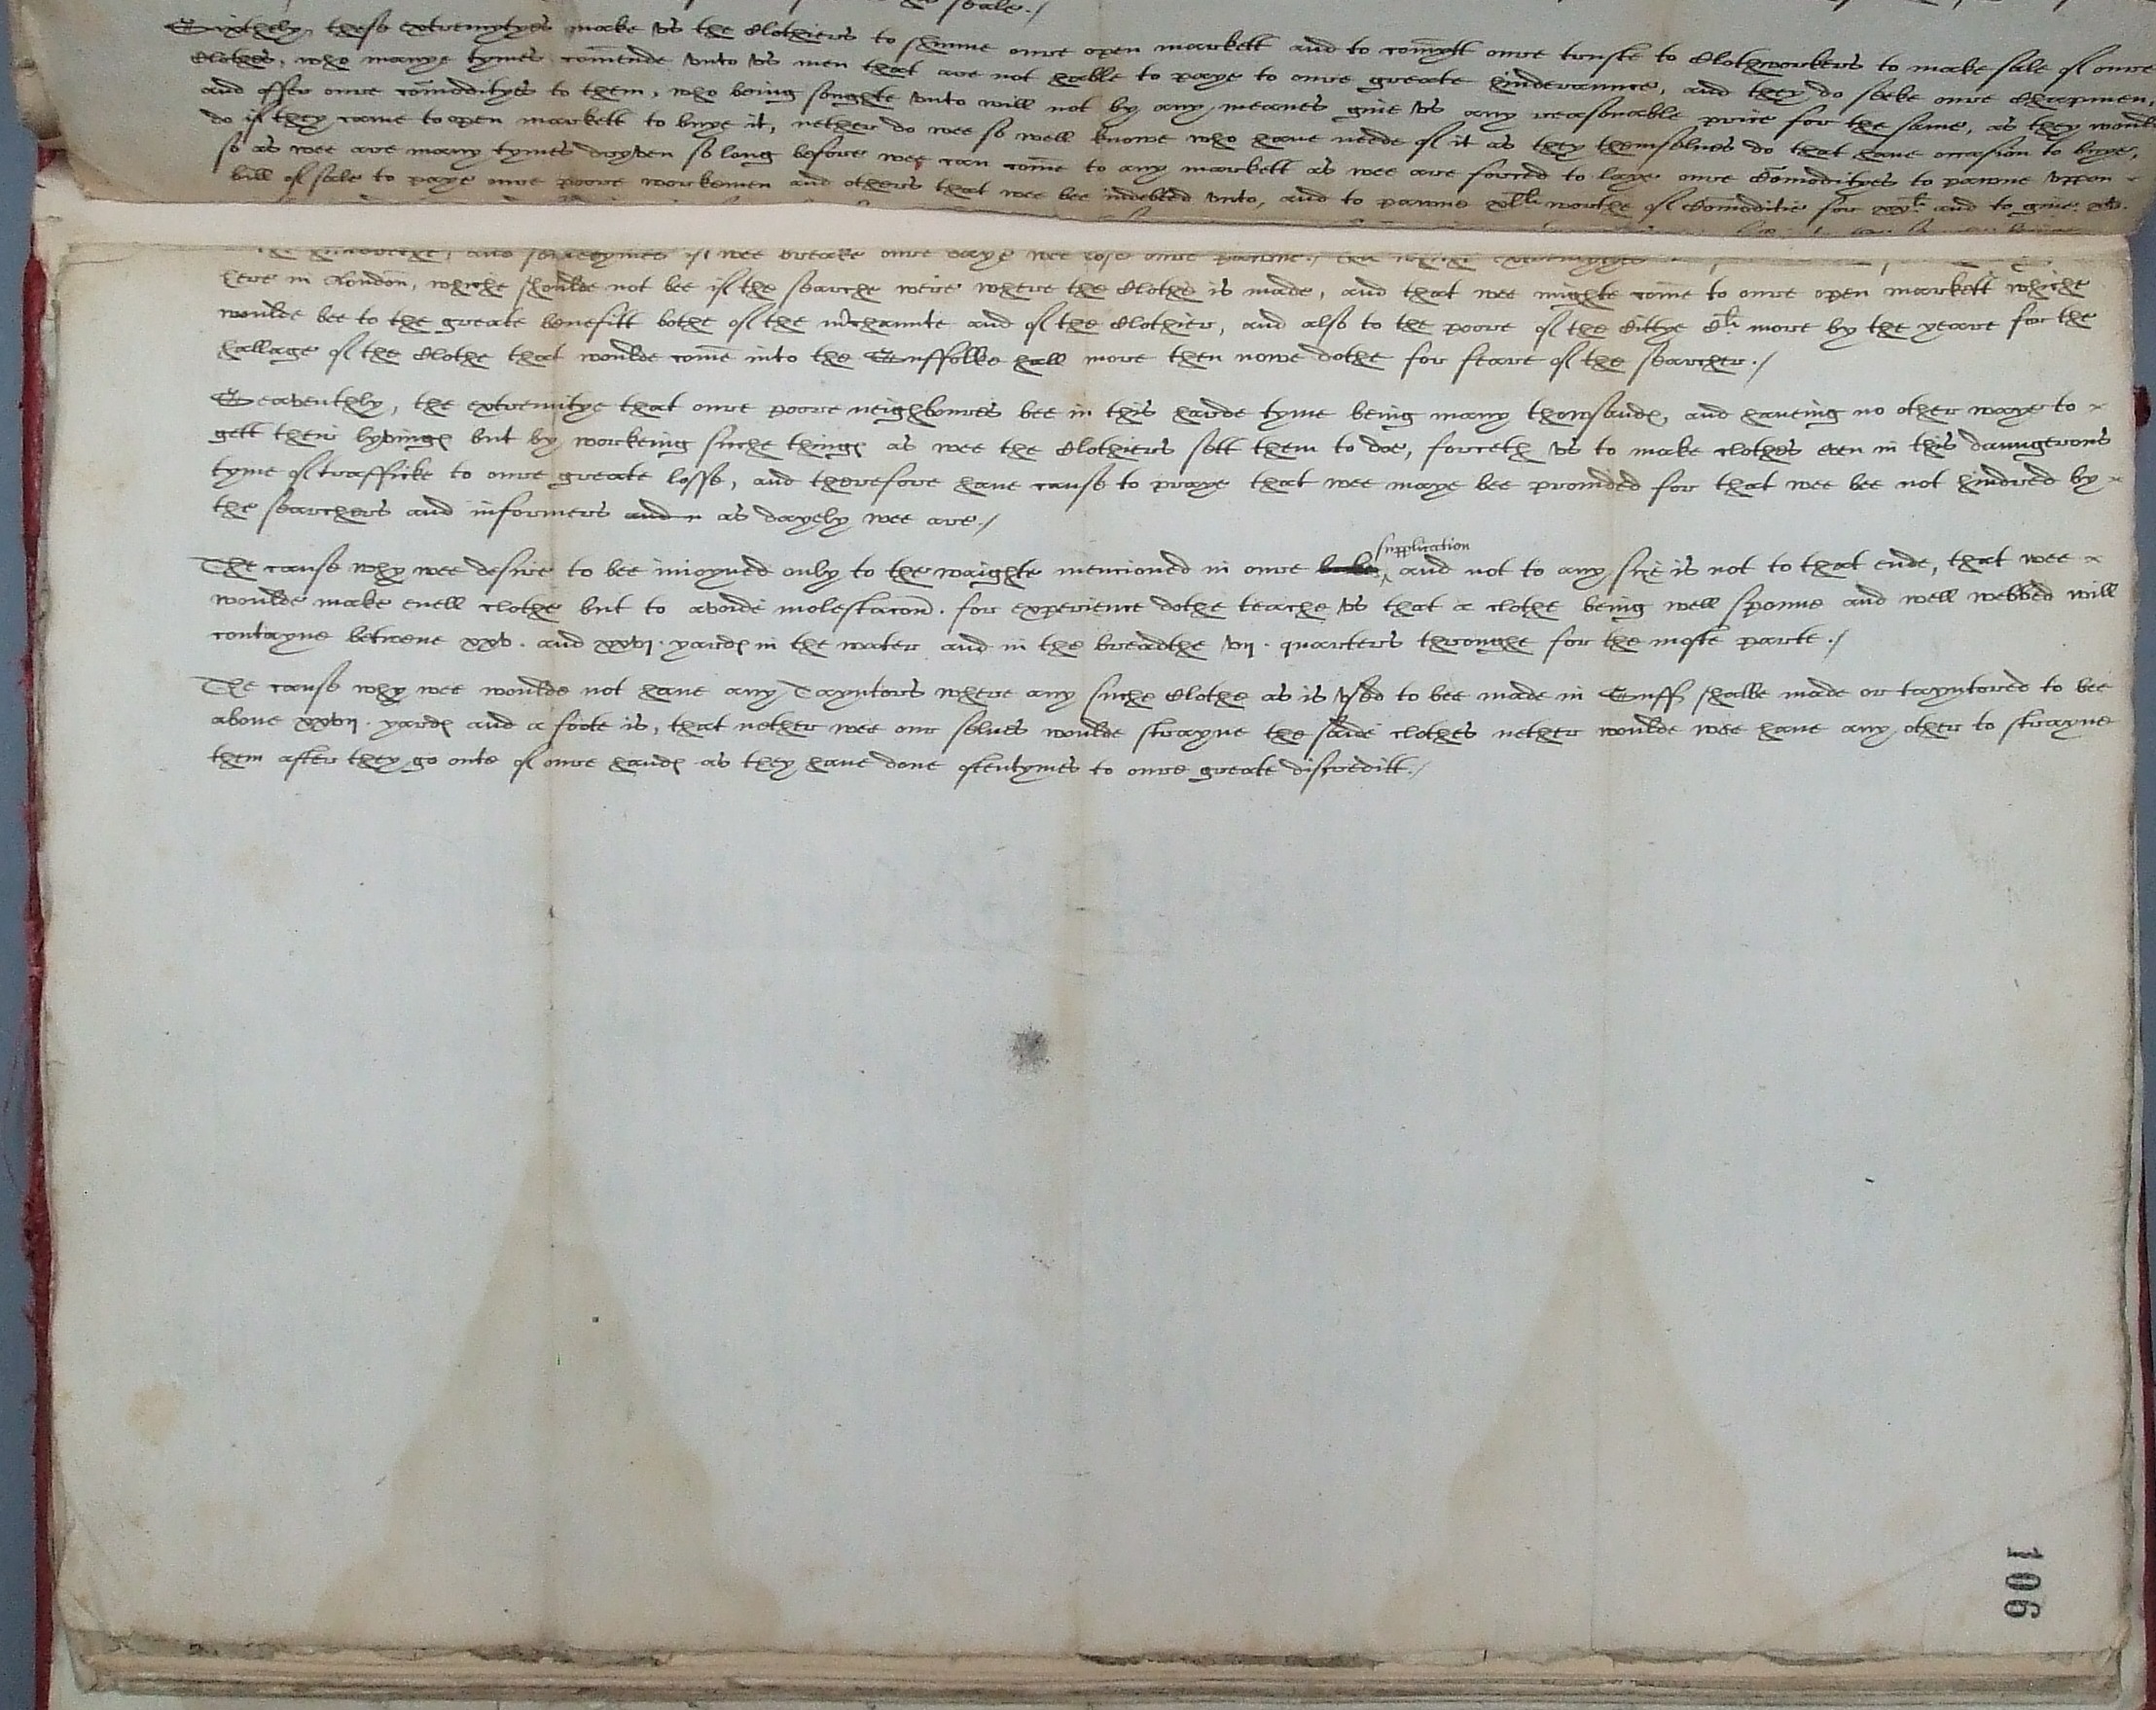 seale./
Sixthely, these extremytyes make vs the Clothiers to shunne owre open markett and to comytt owre truste to Clothworkers to make sale of owre
Clothes, who manye tymes comende vnto vs men that are not hable to paye to owre greate hinderaunce, and they do seeke owre Chapmen,
and offer owre comodityes to them, who being soughte vnto will not by any meanes giue vs any reasonable price for the same, as they would
do if they came to open markett to buye it, nether do wee so well knowe who haue neede of it as they themselues do that haue occasion to buye,
so as wee are many tymes dryven so long before wee can come to any markett as wee are forced to laye owre Comodityes to pawne vppon
bill of sale to paye owre poore workemen and others that wee bee indebted vnto, and to pawne xlli worthe of Comoditie for xxli and to giue
and sometymes if wee breake owre daye wee lose owre pawne./ extremytyes
here in London, whiche shoulde not bee if the searche were where the Clothe is made, and that wee mighte come to owre open markett whiche
woulde bee to the greate benefitt bothe of the mrchaunte and of the Clothier, and also to the poore of the Cittye Cli more by the yeare for the
hallage of the Clothe that woulde come into the Suffolke hall more then nowe dothe for feare of the searcher./
Seaventhly, the extremitye that owre poore neighboures bee in this harde tyme being many thowsandes, and haueing no other waye to
gett their lyvinges but by workeing suche thinges as wee the Clothiers sett them to doe, forceth vs to make clothes even in this daungerous
tyme of trafficke to owre greate losse, and therefore haue cause to praye that wee maye bee prouided for that wee bee not hindred by
the searchers and informers and n as dayely wee are./
supplication
The cause why wee desire to bee inioyned only to the waighte mencioned in owre and not to any size is not to that ende, that wee
woulde make euell clothe but to avoide molestacon. for experience dothe teache vs that a clothe being well sponne and well webbed will
contayne betwene xxv. and xxvj. yardes in the water and in the breadthe vij. quarters throughe for the moste parte./
The cause why wee woulde not haue any Tayntors where any suche Clothe as is vsed to bee made in Suff shalbe made or tayntored to bee
aboue xxvij. yardes and a foote is, that nether wee our selues woulde strayne the saide clothes nether woulde wee haue any other to strayne
them after they go oute of owre handes as they haue done oftentymes to owre greate discreditt./
106